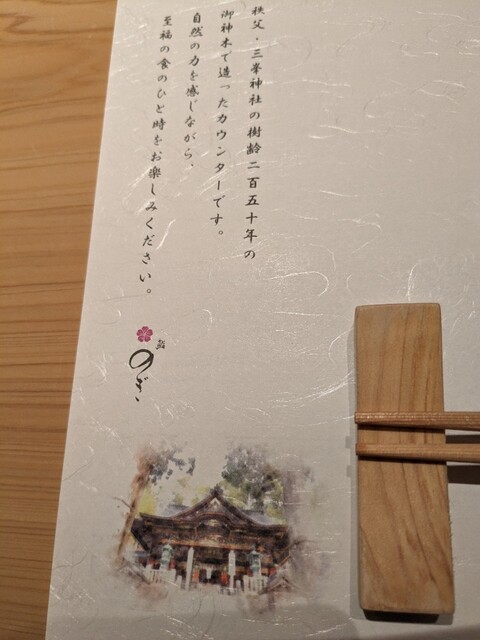 秩父・三峯神社の樹齢二百五十年の
御神木で造ったカウンターです。
自然の力を感じながら、
至福の食のひと時をお楽しみください。
鮨
のぎ